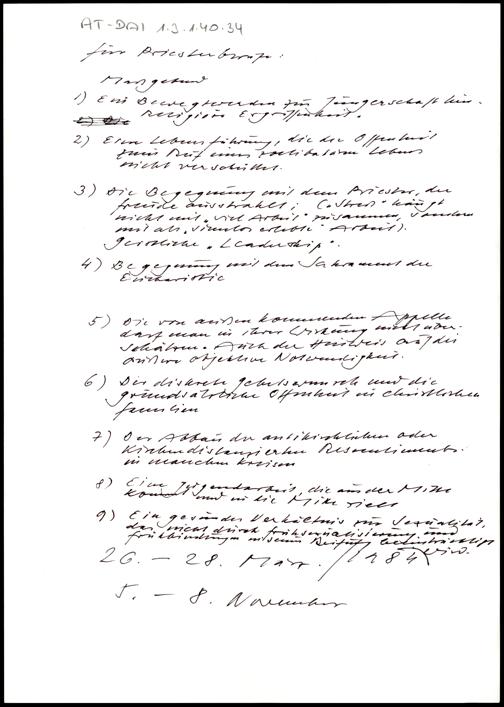 AT-DAI 1.3.1.40.34
für Priesterberufe:
Maßgebend
1) Ein Bewegtwerden zur Jüngerschaft hin.
2) Die Religiöse Ergriffenheit.
2) Eine Lebensführung, die die Offenheit
zum Ruf eines zölibatären Lebens
nicht verschüttet.
3) Die Begegnung mit dem Priester, der
Freude ausstrahlt; ("Stress" hängt
nicht mit "viel Arbeit" zusammen, sondern
mit als "sinnlos erlebte" Arbeit).
Geistliche "Leadership".
4) Begegnung mit dem Sakrament der
Eucharistie
5) Die von außen kommenden Appelle
darf man in ihrer Wirkung nicht über-
schätzen. Auch der Hinweis auf die
äußere objektive Notwendigkeit.
6) Der diskrete Gebetswunsch und die
grundsätzliche Offenheit in christlichen
Familien
7) Der Abbau der antikirchlichen oder
kirchendistanzierten Ressentiments
in manchen Kreisen
8) Eine Jugendarbeit, die aus der Mitte
kommt und in die Mitte zielt
9) Ein gesundes Verhältnis zur Sexualität,
das nicht durch Frühsexualisierung und
Frühbindung in seiner Reifung beeinträchtigt
wird.
26. – 28. März / 1984
5. – 8. November